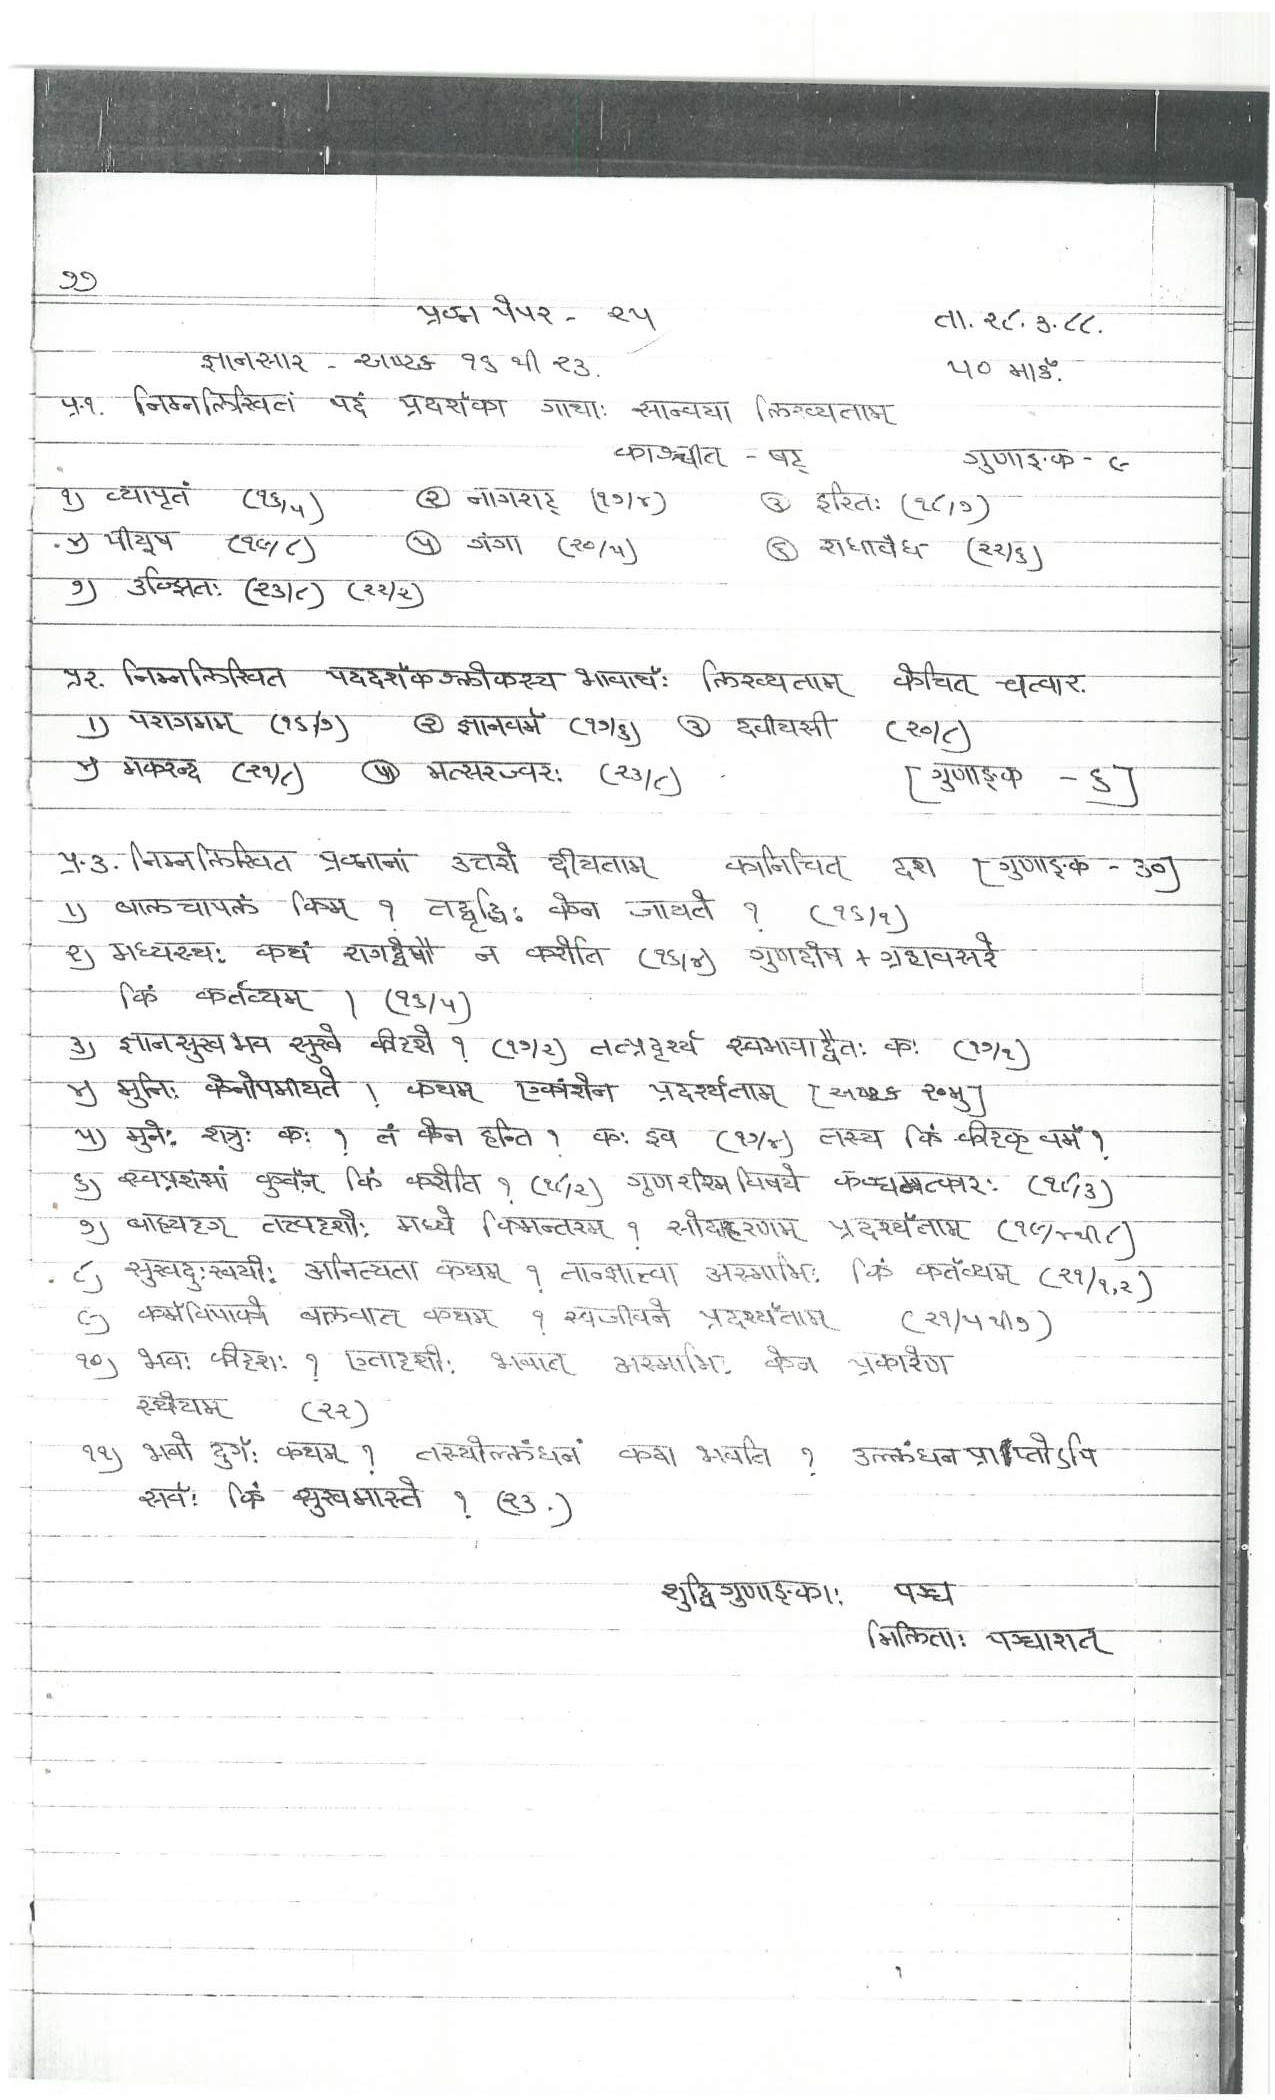 ૭૭
प्रश्न पेपर - २५ ता. २८.३.८८.
ज्ञानसार - अष्टक १६ थी २३. ५० मार्क.
प्र.१. निम्नलिखितं पदं प्रदर्शका गाथाः सान्वया लिख्यताम्
काश्चीत् - षट् गुणाङ्क - ९
१) व्यापृतं (१६/५) ② नागराट् (१७/४) ③ हरितः (१८/७)
४) पीयूष (१९/८) ⑤ गंगा (२०/५) ⑥ राधावेध (२२/६)
७) उज्झितः (२३/८) (२२/२)
प्र२. निम्नलिखित पददर्शकश्लोकस्य भावार्थः लिख्यताम् केचित् चत्वार.
१) परागमम् (१६/७) ② ज्ञानवर्म (१७/६) ③ दवीयसी (२०/८)
४) मकरन्द (२१/८) ⑤ मत्सरज्वरः (२३/८) [गुणाङ्क - ६]
प्र.३. निम्नलिखित प्रश्नानां उत्तरो दीयताम् कानिचित् दश [गुणाङ्क - ३०]
१) बालचापलं किम् ? तद्वृद्धिः केन जायते ? (१६/१)
२) मध्यस्थः कथं रागद्वेषौ न करोति (१६/४) गुणदोष + ग्रहावसरे
किं कर्तव्यम् । (१६/५)
३) ज्ञानसुख भव सुखे कीदृशे ? (१७/२) तत्प्रदृर्श्य स्वभावाद्वैतः कः (१७/१)
४) मुनिः केनोपमीयते । कथम् एकांशेन प्रदर्श्यताम् [अष्टक २०मु]
५) मुनेः शत्रुः कः ? तं केन हन्ति ? कः इव (१७/४) तस्य किं कीदृक् वर्म ?
६) स्वप्रशंसां कुर्वन् किं करोति ? (१८/२) गुणरश्मि विषये कश्चमत्कारः (१८/३)
७) बाह्यदृग् तत्वदृशोः मध्ये किमन्तरम् ? सोदाहरणम् प्रदर्श्यताम् (१९/४थी८)
८) सुखदुःखयोः अनित्यता कथम् ? तान्ज्ञात्वा अस्माभिः किं कर्तव्यम् (२१/१,२)
९) कर्मविपाको बलवान् कथम् ? स्वजीवने प्रदर्श्यताम् (२१/५थी७)
१०) भवः कीदृशः ? एतादृशोः भवात् अस्माभिः केन प्रकारेण
स्थेयम् (२२)
११) भवो दुर्गः कथम् ? तस्योल्लंघनं कदा भवति ? उल्लंघन प्राप्तोऽपि
सर्वः किं सुखमास्ते ? (२३.)
शुद्धि गुणाङ्काः पञ्च
मिलिताः पञ्चाशत्